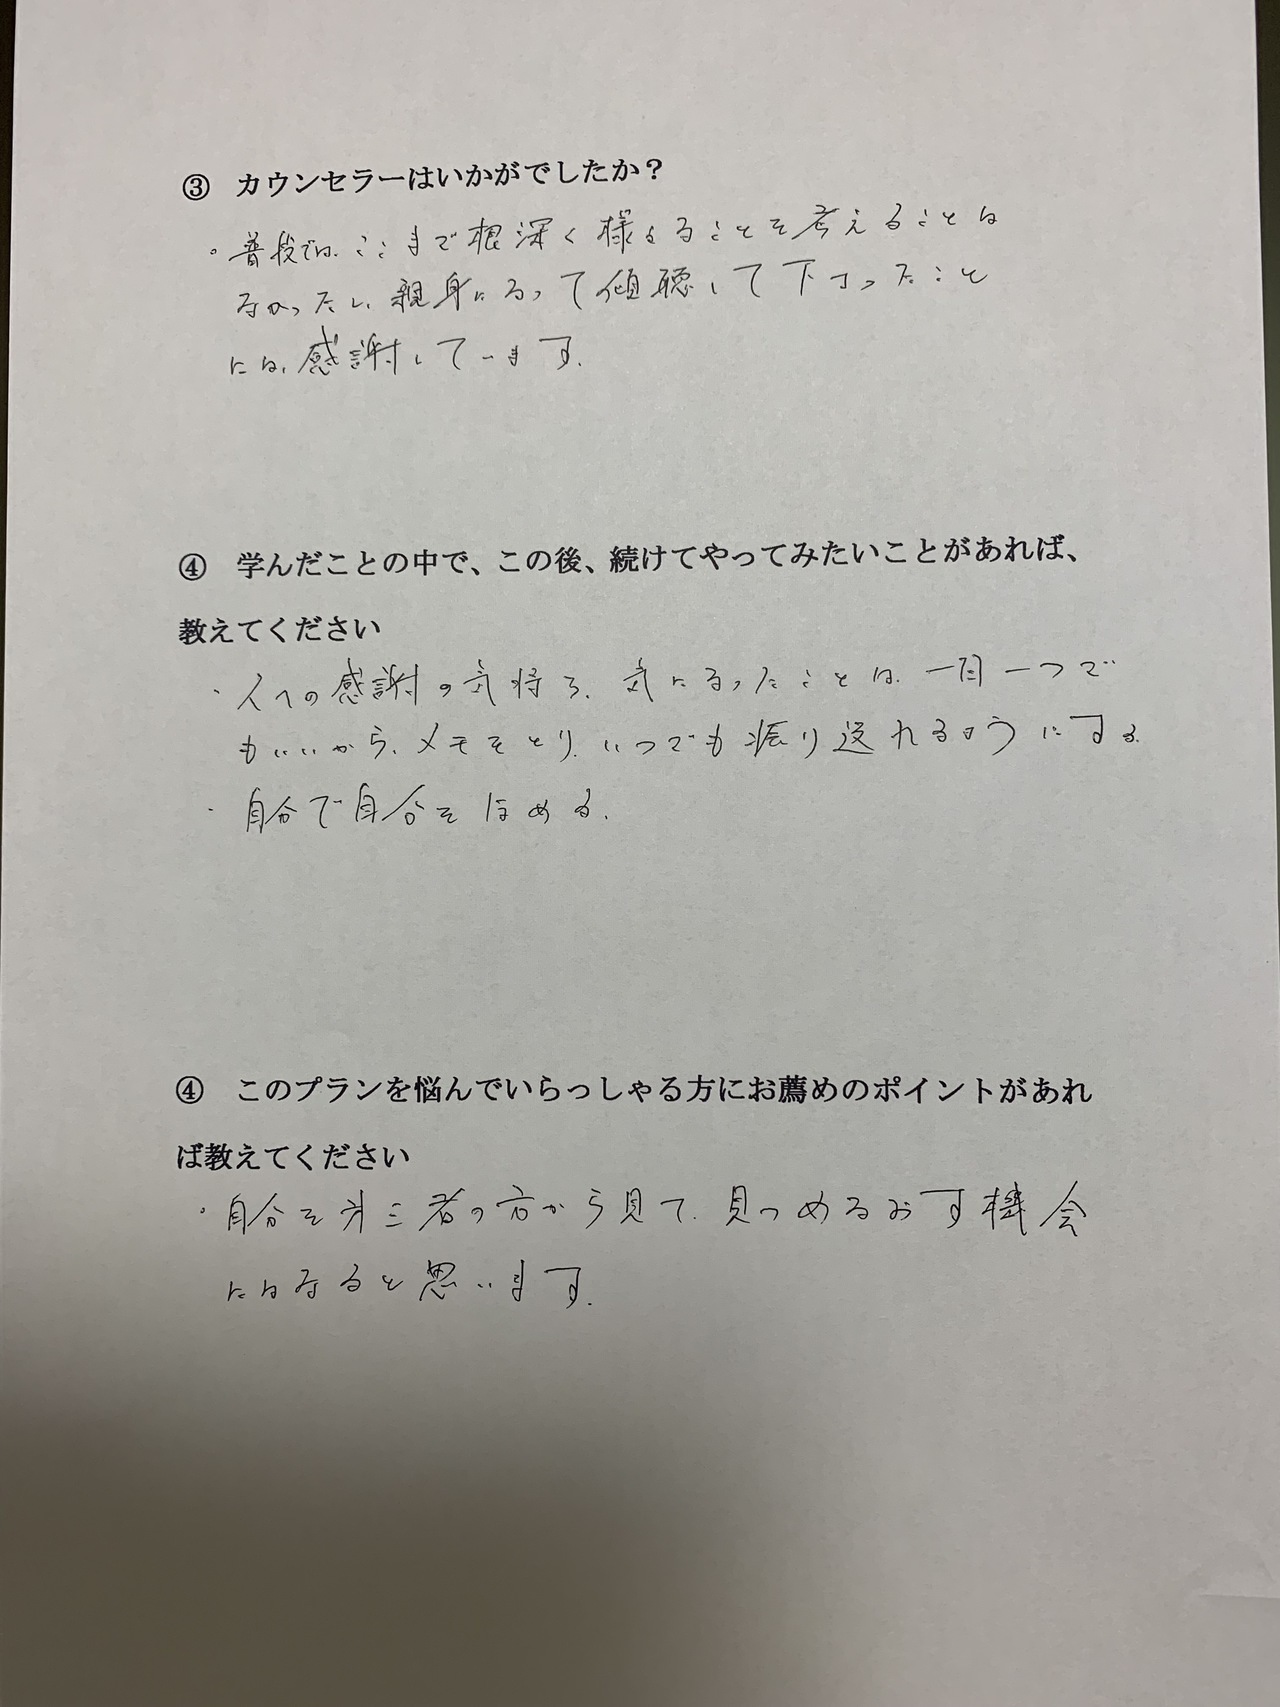 ③ カウンセラーはいかがでしたか？
・普段では、ここまで根深く様々ることを考えることは
なかったし、親身になって傾聴して下さったこと
には、感謝しています。
④ 学んだことの中で、この後、続けてやってみたいことがあれば、
教えてください
・人への感謝の気持ち、気になったことは、一日一つで
もいいから、メモをとり、いつでも振り返れるようにする。
・自分で自分をほめる。
④ このプランを悩んでいらっしゃる方にお薦めのポイントがあれ
ば教えてください
・自分を第三者の方から見て、見つめなおす機会
にはなると思います。